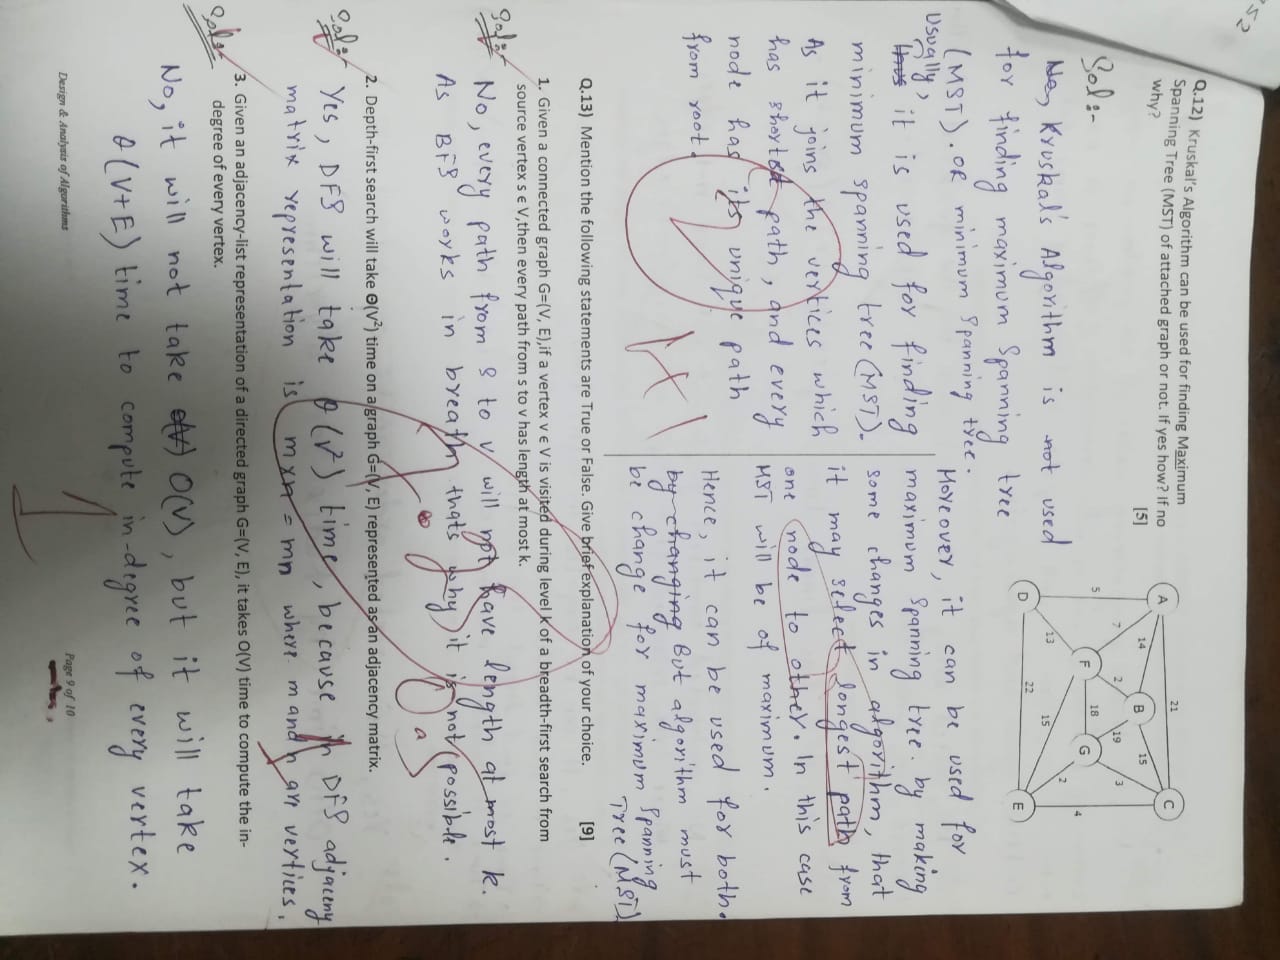 152
Q.12) Kruskal's Algorithm can be used for finding Maximum
Spanning Tree (MST) of attached graph or not. If yes how? If no
why?
[5]
A
B
C
D
E
F
G
21
14
15
7
2
19
3
5
18
4
13
15
2
22
Sol:-
No, Kruskal's Algorithm is not used
for finding maximum Spanning tree
(MST). OR minimum Spanning tree.
Usually,
Thus it is used for finding
minimum spanning tree (MST).
As it joins the vertices which
has shortest path, and every
node has its unique path
from root.
Moreover, it can be used for
maximum Spanning tree. by making
some changes in algorithm, that
it may select longest path from
one node to other. In this case
MST will be of maximum.
Hence, it can be used for both.
by changing But algorithm must
be change for maximum Spanning
Tree (MST)
2
1+1
Q.13) Mention the following statements are True or False. Give brief explanation of your choice.
[9]
1. Given a connected graph G=(V, E),if a vertex v ϵ V is visited during level k of a breadth-first search from
source vertex s ϵ V,then every path from s to v has length at most k.
Sol:-
No, every path from S to V will not have length at most k.
As BFS works in breath thats why it is not possible.
2. Depth-first search will take Θ(V²) time on a graph G=(V, E) represented as an adjacency matrix.
Sol:-
Yes, DFS will take θ(V²) time, because in DFS adjaceny
matrix representation is m×n = mn where m and n are vertices.
3. Given an adjacency-list representation of a directed graph G=(V, E), it takes O(V) time to compute the in-
degree of every vertex.
Sol:-
No, it will not take O(V) O(V), but it will take
θ(V+E) time to compute in-degree of every vertex.
1
Design & Analysis of Algorithms
Page 9 of 10